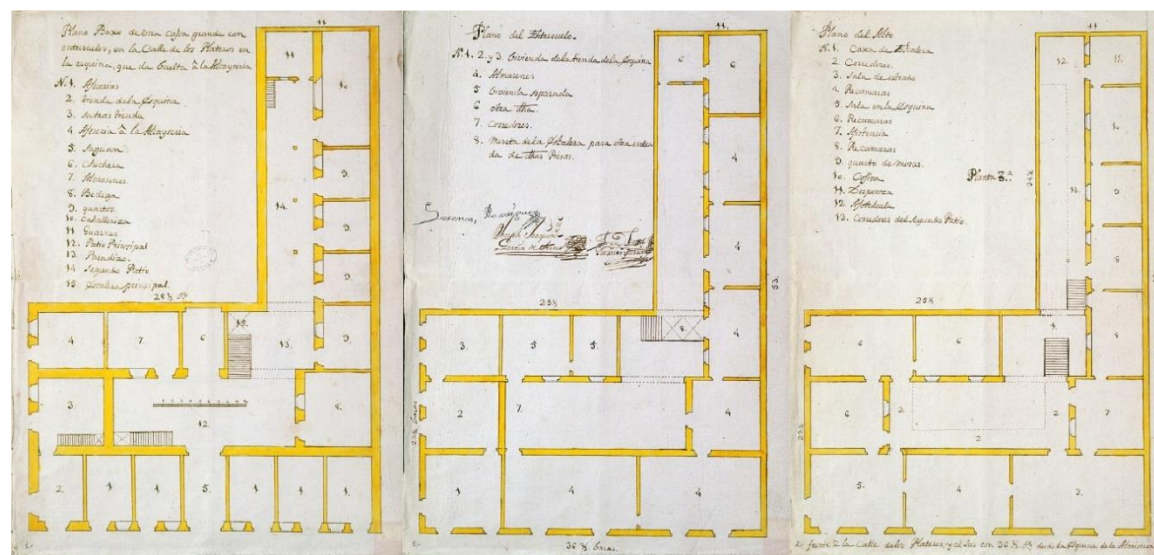 Plano Baxo de una Casa grande con
entresuelos, en la Calle de los Plateros en
la esquina, que da buelta à la Alcayseria
N. 1. Acesorias
2. tienda de la Esquina
3. su trastienda
4. Acesoria à la Alcayseria
5. Saguan
6. Cochera
7. Almacenes
8. Bodega
9. quartos
10. Caballeriza
11. Guarnes
12. Patio Principal
13. Pasadizo
14. Segundo Patio
15. Escalera principal
28 ½ bs
11
11
10
9
9
9
9
9
14
15
13
4
7
6
3
12
8
2
1
1
5
1
1
1
Plano del Entresuelo.
N. 1. 2. y 3. Vivienda de la tienda de la Esquina
4. Almacenes
5. Vivienda separada
6. otra
7. Corredores.
8. Meseta de la Escalera para
da de otras Piezas.
11
6
6
4
4
4
4
4
53
25 ½
3
5
5
8
2
7
4
1
4
4
36 ½ baras.
Plano del Alto
N. 1. Caxa de Escalera
2. Corredores
3. Sala de estrado
4. Recamaras
5. Sala en la Esquina
6. Recamaras
7. Asistencia
8. Recamaras
9. quarto de mosas
10. Cosina
11. Despensa
12. Asotehuela
13. Corredores del Segundo Patio
Planta 3.ª
11
12
11
10
9
13
8
8
25 ½
6
6
1
6
2
2
2
7
5
4
3
frente à la Calle de los Plateros, y al Sur con 36 ½ bs desde la Esquina de la Alcayseria